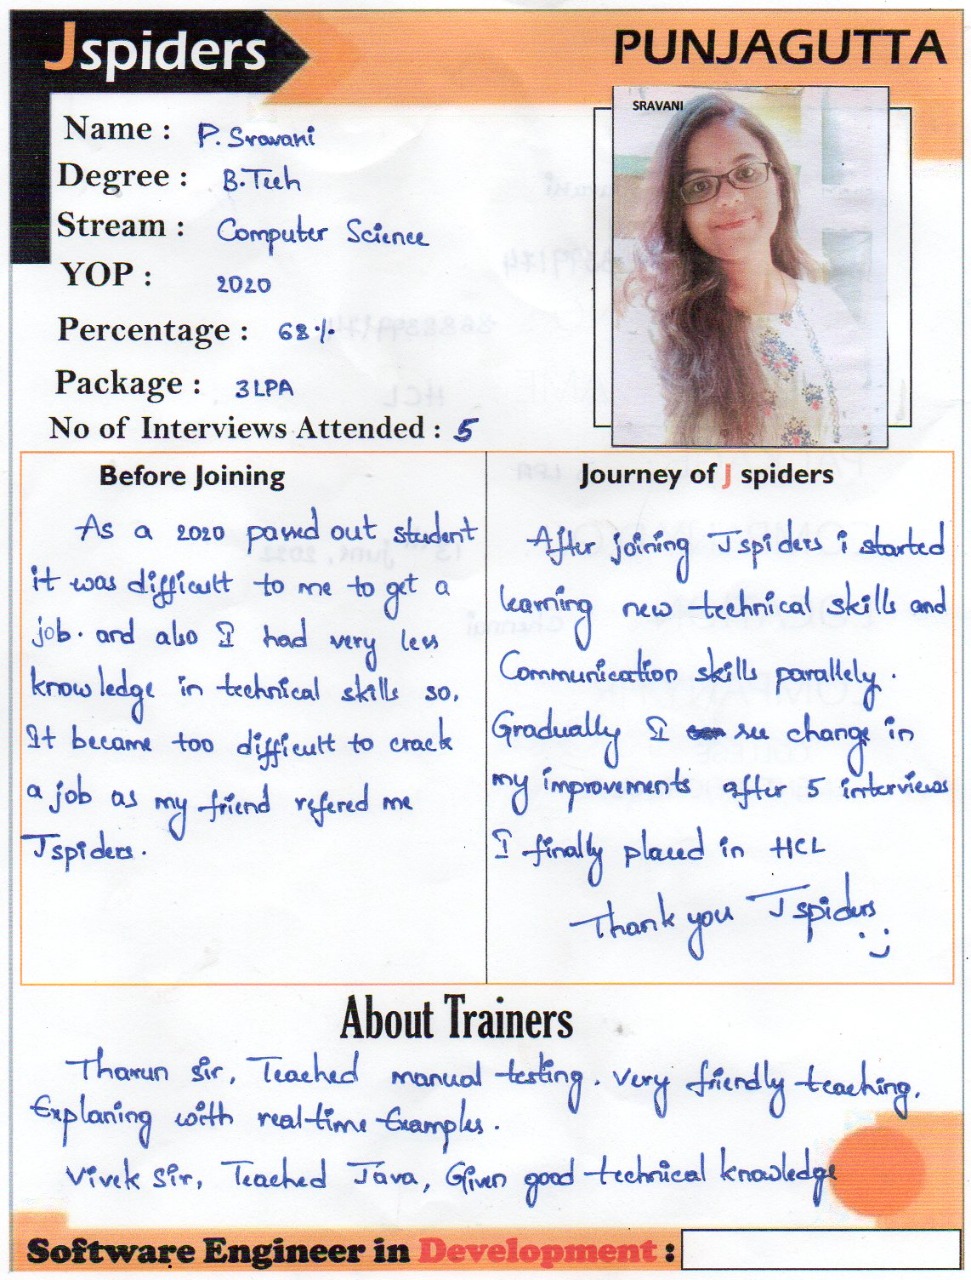 Jspiders
PUNJAGUTTA
SRAVANI
Name : P. Sravani
Degree : B.Tech
Stream : Computer Science
YOP : 2020
Percentage : 68%
Package : 3LPA
No of Interviews Attended : 5
Before Joining
As a 2020 passed out student
it was difficult to me to get a
job. and also I had very less
knowledge in technical skills so,
It became too difficult to crack
a job as my friend refered me
Jspiders.
Journey of J spiders
After joining Jspiders i started
learning new technical skills and
Communication skills parallely.
Gradually I see change in
my improvements after 5 interviews
I finally placed in HCL
Thank you Jspiders
About Trainers
Tharun sir, Teached manual testing. Very friendly teaching,
Explaning with real-time Examples.
Vivek Sir, Teached Java, Given good technical knowledge
Software Engineer in Development :